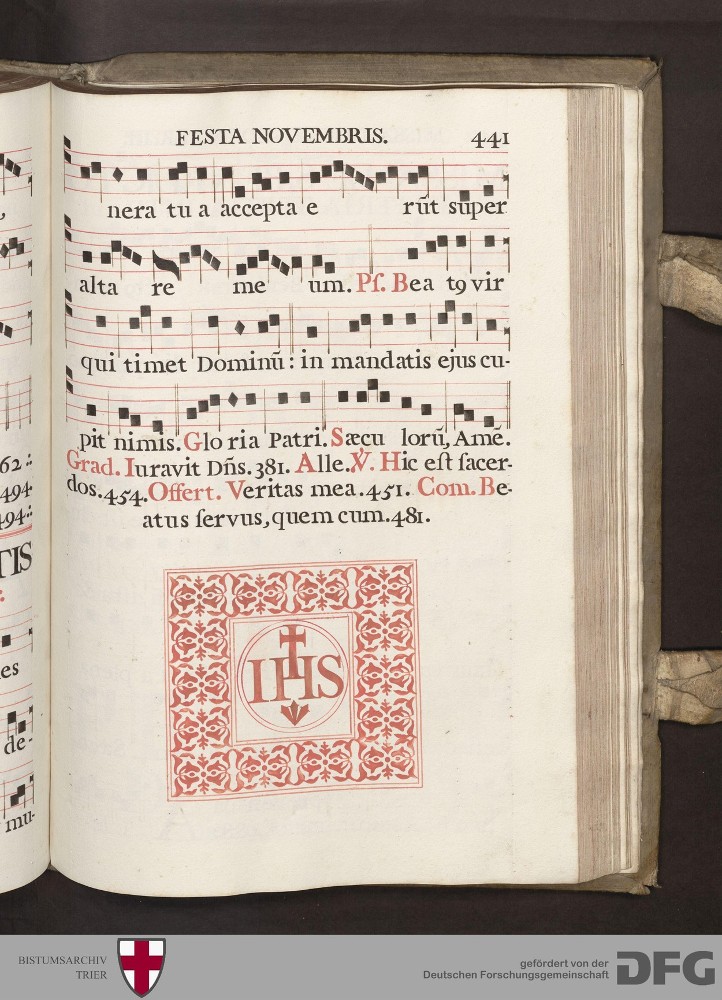 62 :
494.
494 :
TIS
es
de-
mu-
FESTA NOVEMBRIS. 441
nera tu a accepta e rūt super
alta re me um. Pſ. Bea t9 vir
qui timet Dominū : in mandatis ejus cu-
pit nimis. Glo ria Patri. Sæcu lorū, Amē.
Grad. Iuravit Dn̄s. 381. Alle. V̓. Hic eſt ſacer-
dos. 454. Offert. Veritas mea. 451. Com. Be-
atus ſervus, quem cum. 481.
IHS
BISTUMSARCHIV
TRIER
gefördert von der
Deutschen Forschungsgemeinschaft
DFG